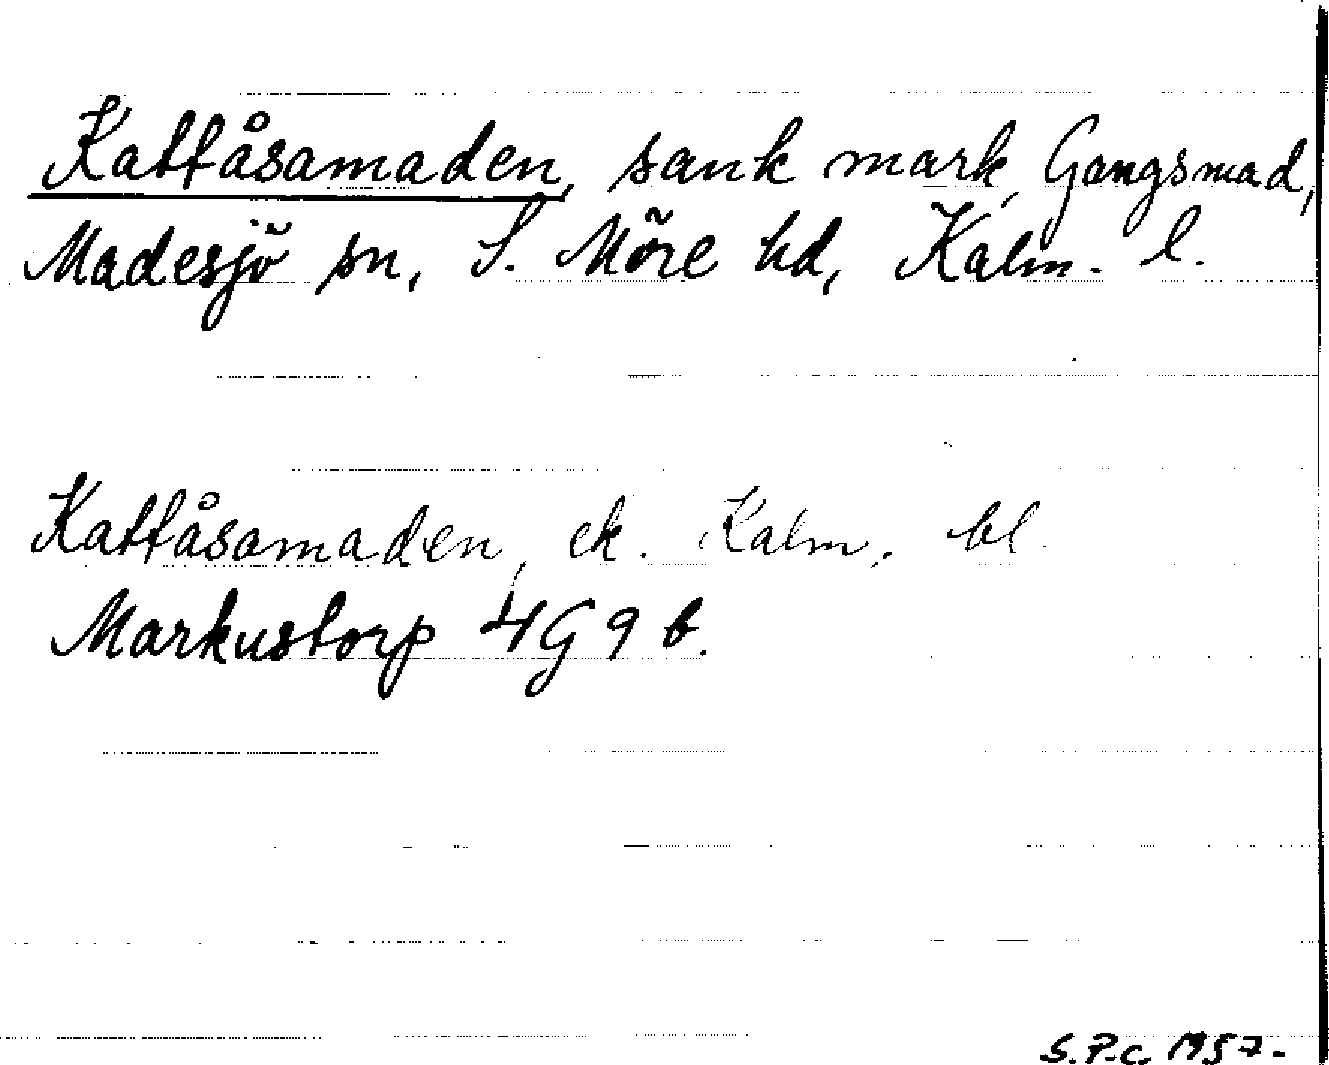 Kattåsamaden, sank mark, Gangsmad,
Madesjö sn, S. Möre hd, Kalm. l.
Kattåsamaden, ek. Kalm. bl.
Markustorp 4G9b.
S.P.c. 1957-